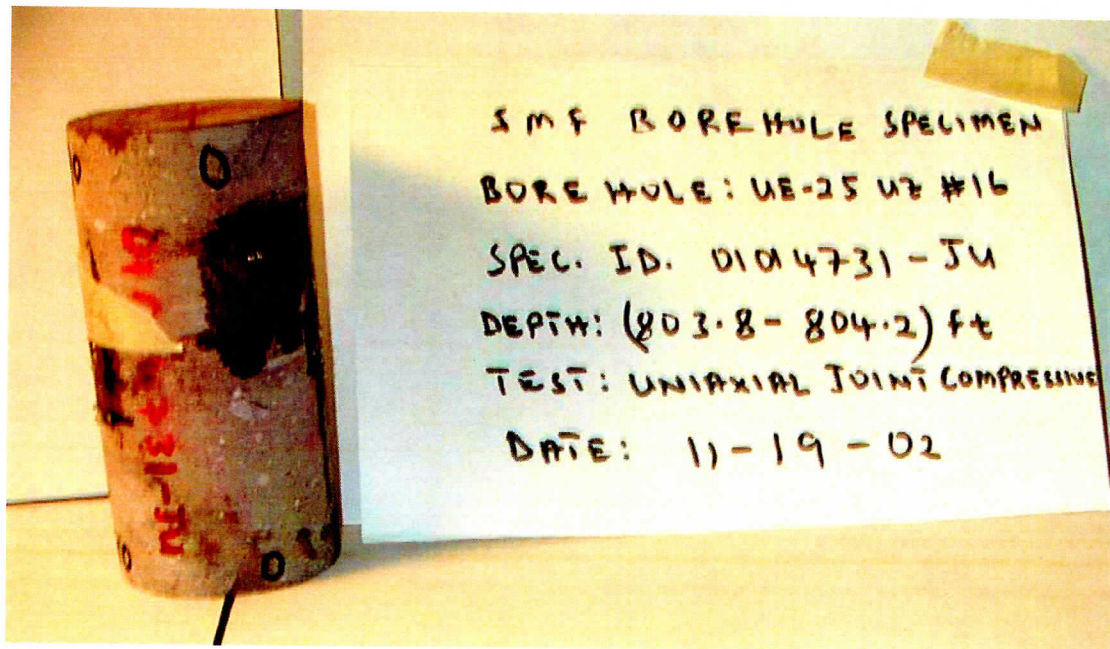 SMF BOREHOLE SPECIMEN
BOREHOLE: UE-25 UZ #16
SPEC. ID. 01014731-JU
DEPTH: (803.8-804.2) ft
TEST: UNIAXIAL JOINT COMPRESSIVE
DATE: 11-19-02
0 0
31-JU
0 0